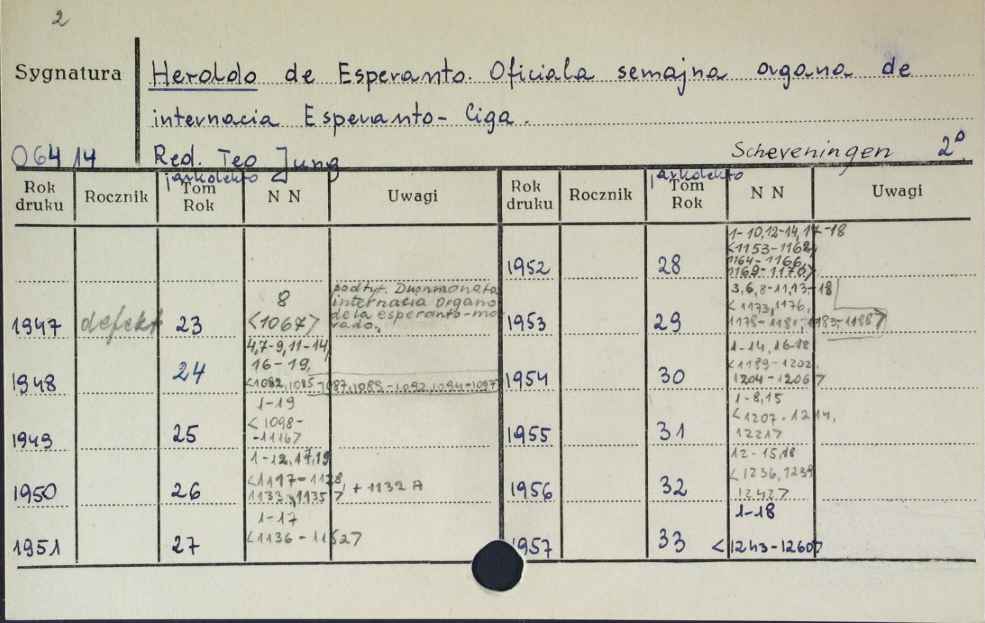 2
Sygnatura
Heroldo de Esperanto. Oficiala semajna organo de
internacia Esperanto-Liga.
06414
Red. Teo Jung
Scheveningen 2°
Rok druku Rocznik jarkolekto Tom Rok N N Uwagi Rok druku Rocznik jarkolekto Tom Rok N N Uwagi
1947 defekt 23 8 <1067> podtyt. Duonmonata internacia organo de la esperanto-movado.
1948 24 4,7-9,11-14, 16-19, <1082, 1085-1087, 1089-1092, 1094-1097>
1949 25 1-19 <1098--1116>
1950 26 1-12,17,19 <1117-1128, 1133, 1135> + 1132 A
1951 27 1-17 <1136-1152>
1952 28 1-10,12-14,17-18 <1153-1162, 1164-1166, 1169-1170>
1953 29 3,6,8-11,13-18 <1173,1176, 1178-1181, 1183-1188>
1954 30 1-14, 16-18 <1189-1202, 1204-1206>
1955 31 1-8,15 <1207-1214, 1221>
1956 32 12-15,18 <1236,1239 1242>
1957 33 1-18 <1243-1260>